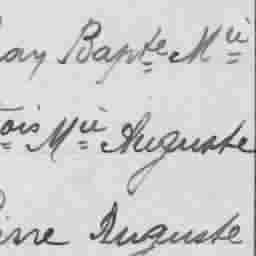 Bapte Mie
ois Mie Auguste
ierre Auguste